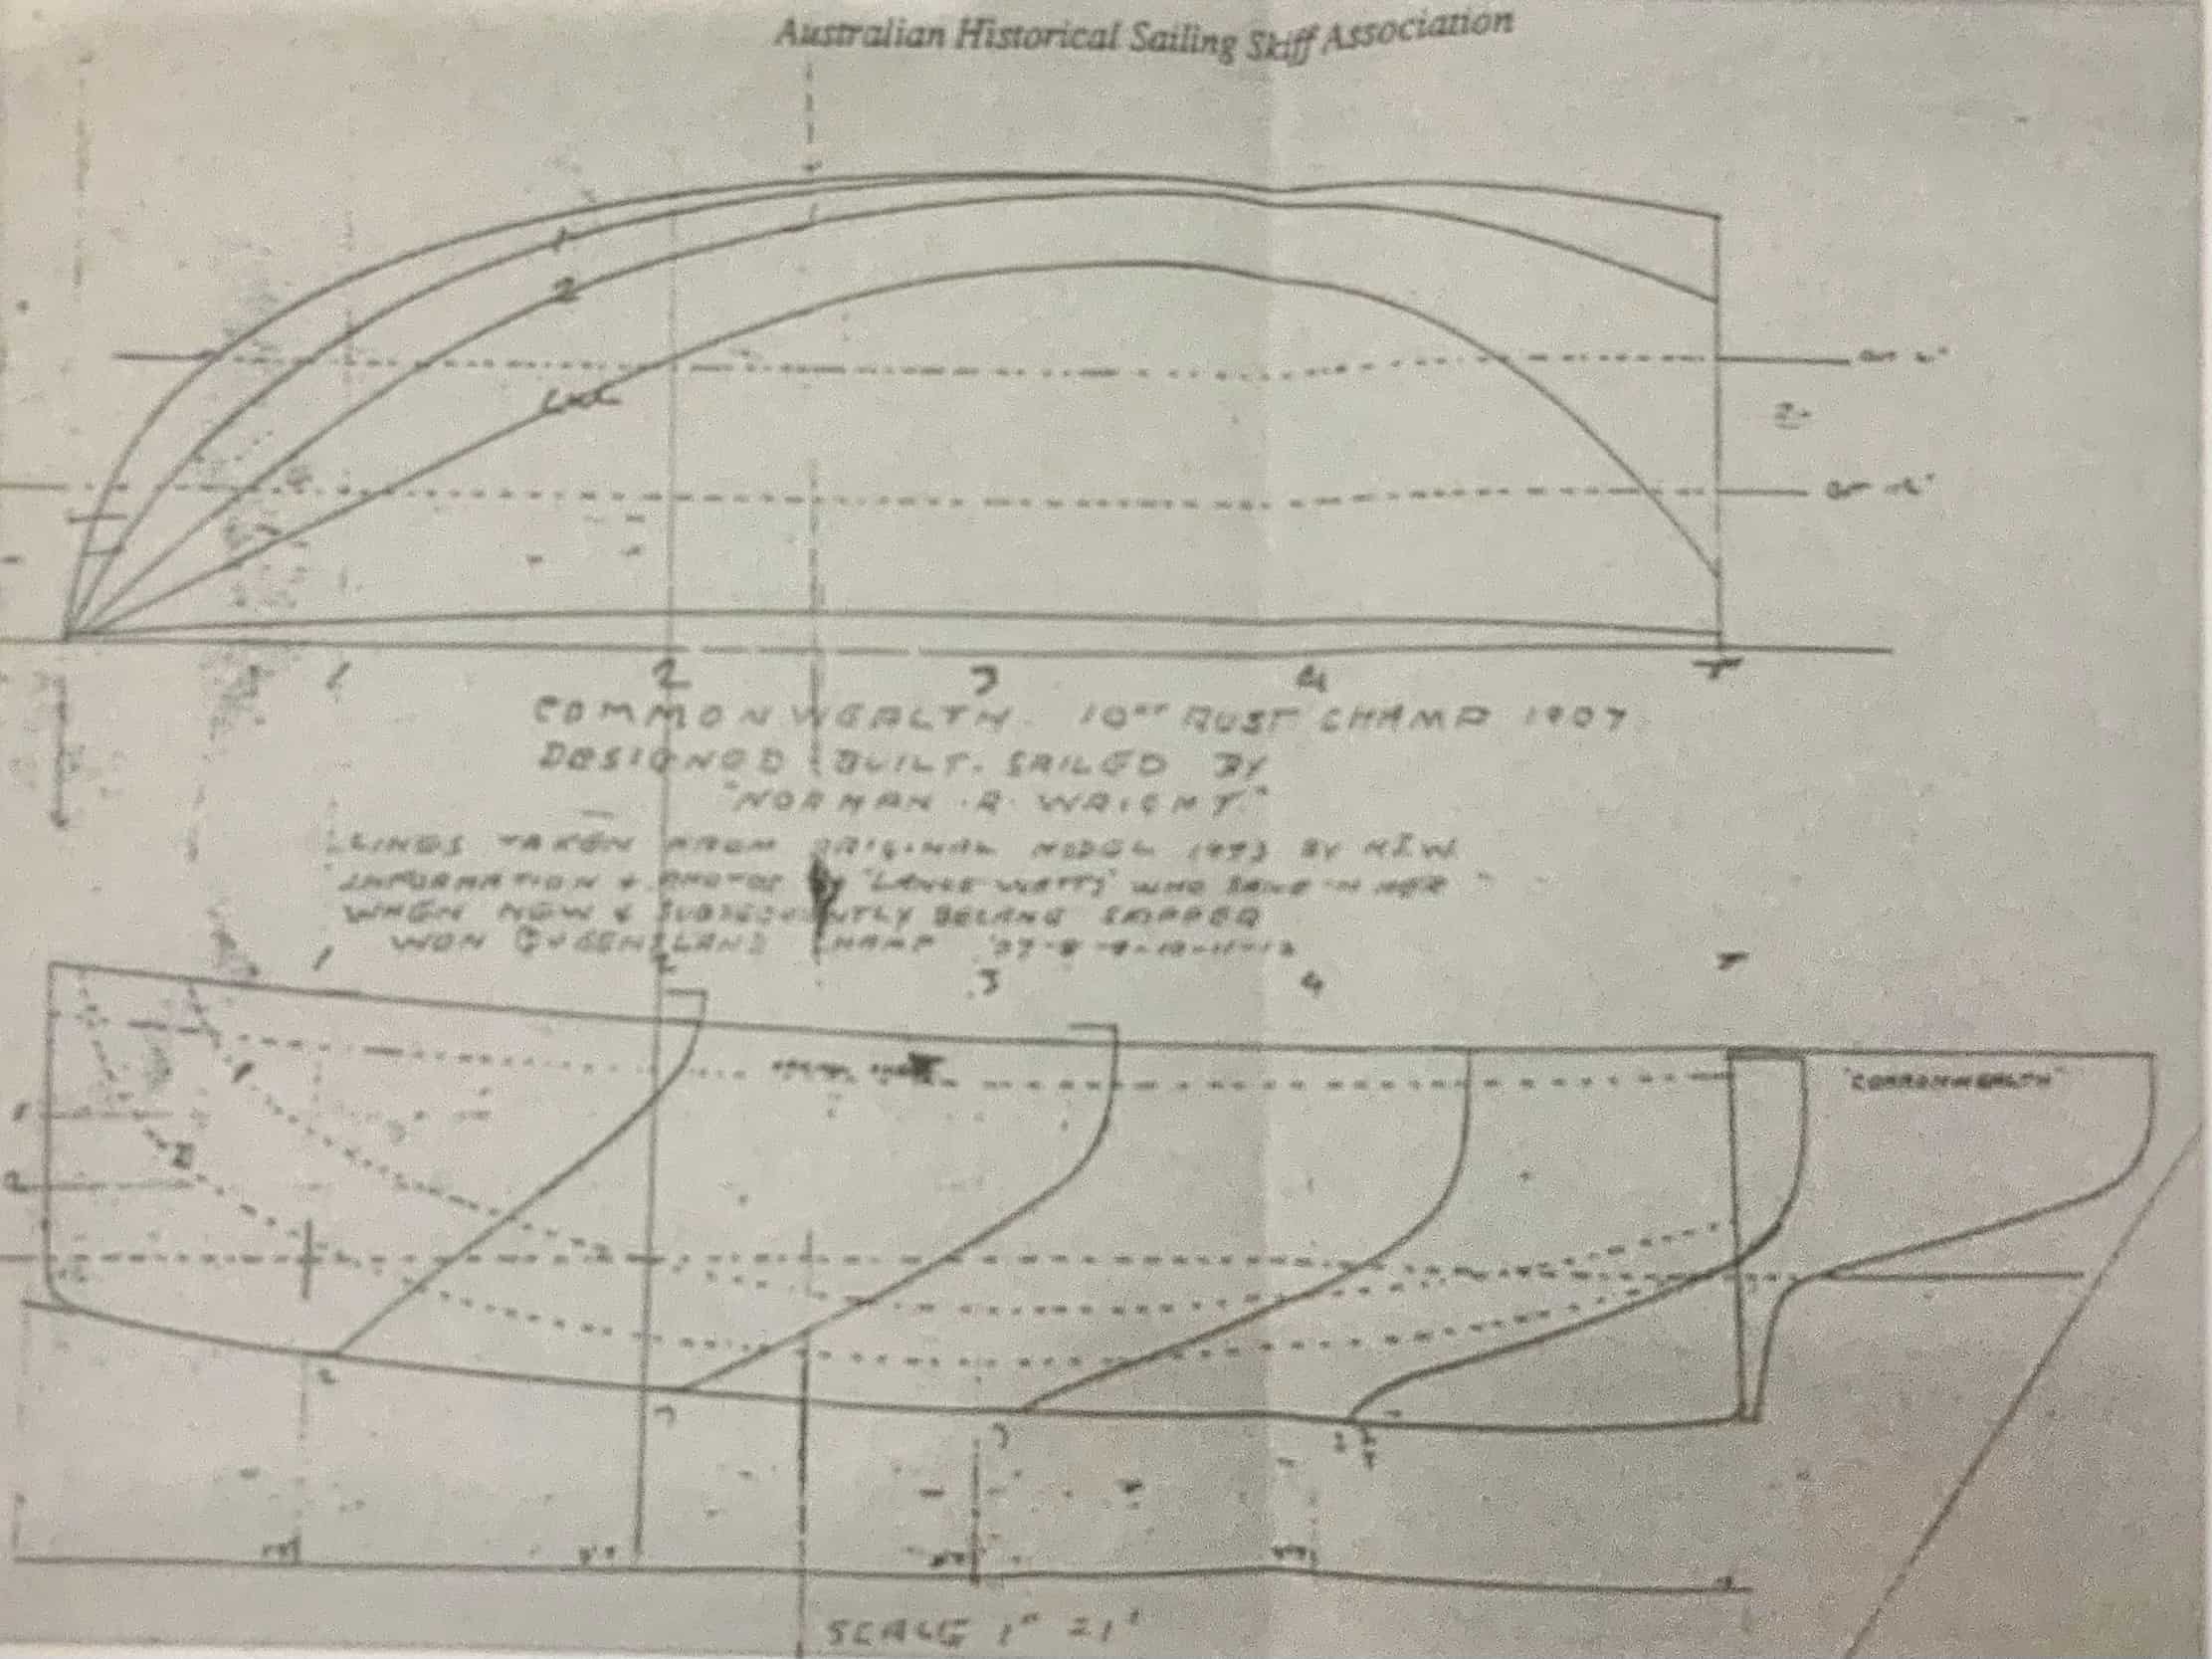 Australian Historical Sailing Skiff Association
1
2
LWL
1 2 3 4 T
COMMONWEALTH. 10FT AUST CHAMP 1907
DESIGNED BUILT. SAILED BY
"NORMAN . R. WRIGHT."
LINES TAKEN FROM ORIGINAL MODEL BY
INFORMATION + PHOTOS BY "LANCE WATTS" WHO IN HER
WHEN NEW & SUBSEQUENTLY BECAME
WON QUEENSLAND CHAMP '07-8-9-10-11-12
1 2 3 4 T
"COMMONWEALTH"
1
2
SCALE 1" = 1'